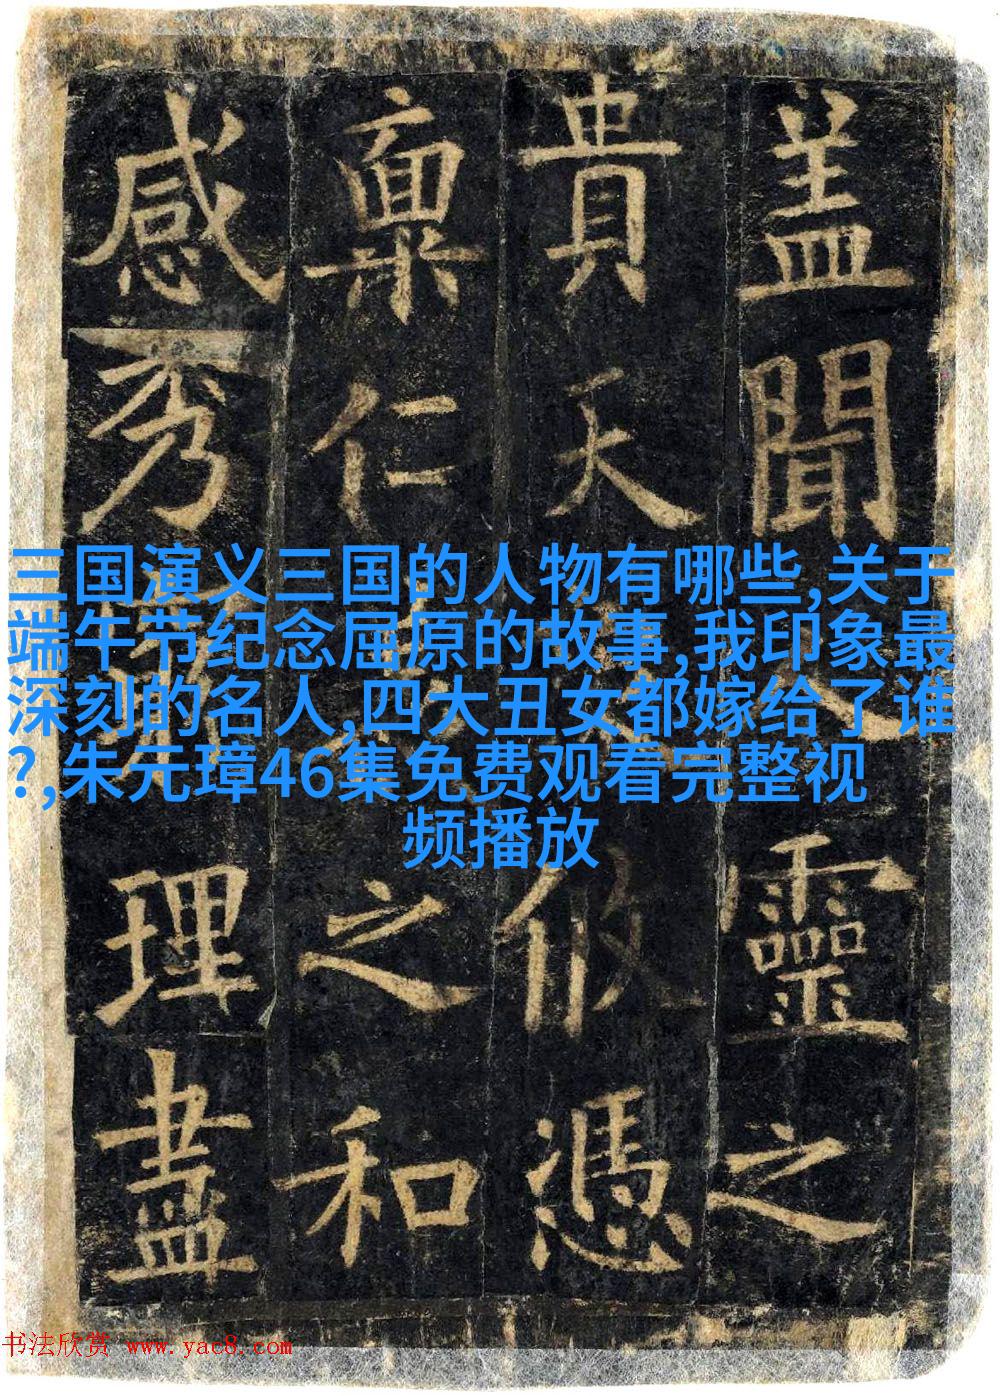 盖聞靈之
貴天攸憑
稟仁之和
感秀理盡
三国演义三国的人物有哪些,关于
端午节纪念屈原的故事,我印象最
深刻的名人,四大丑女都嫁给了谁
?,朱元璋46集免费观看完整视
频播放
书法欣赏 www.yac8.com